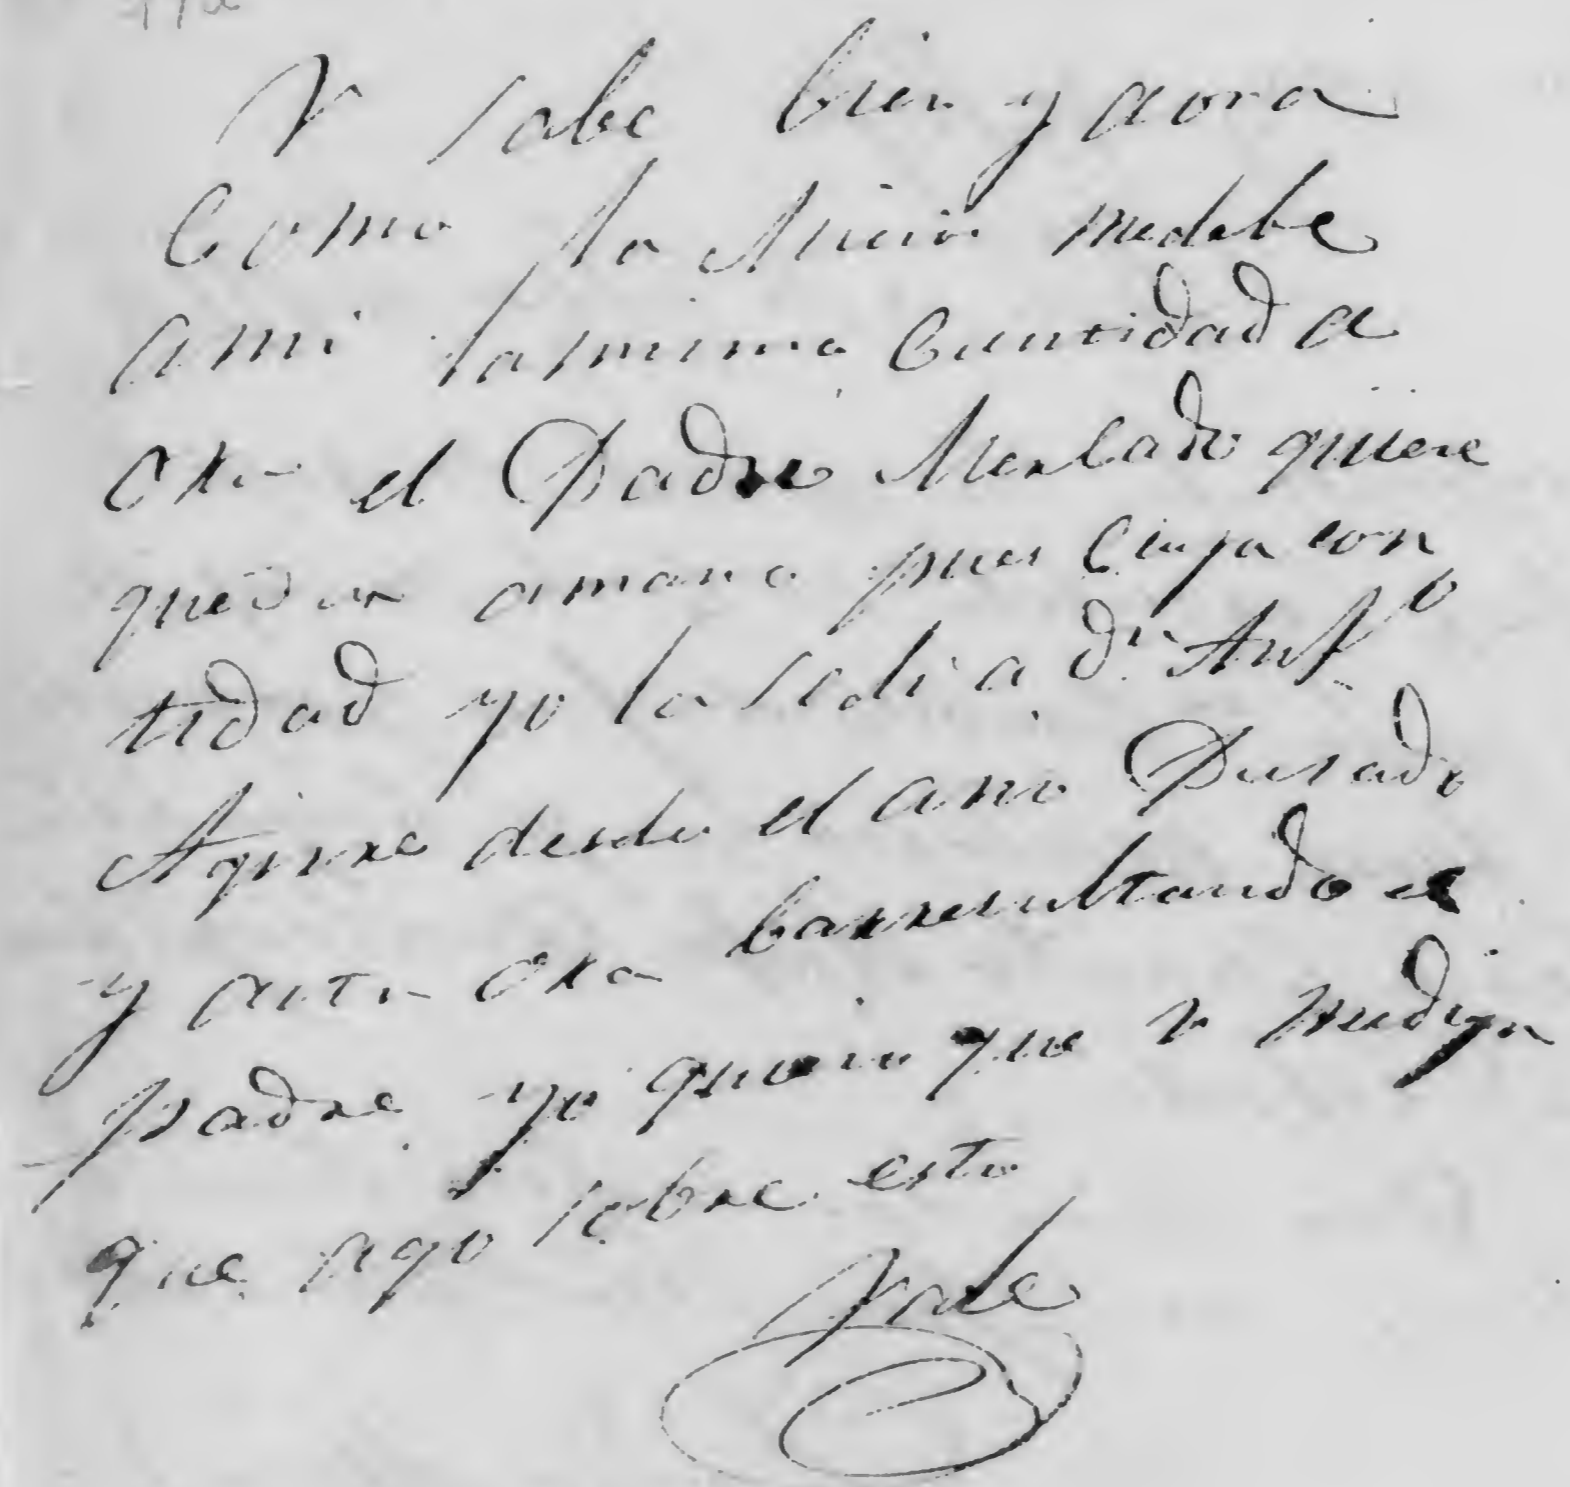 V sabe bien y aora
Como la Micion medebe
ami lamima Cantidad a
ora el Padre Mercado quiere
quedar amano pues Cuya can
tidad yo la sedi a Dn. Anto
Aguirre desde el año Pasado
y asta ora barresultando el
padre yo quiero que V mediga
que ago sobre esto
Vale